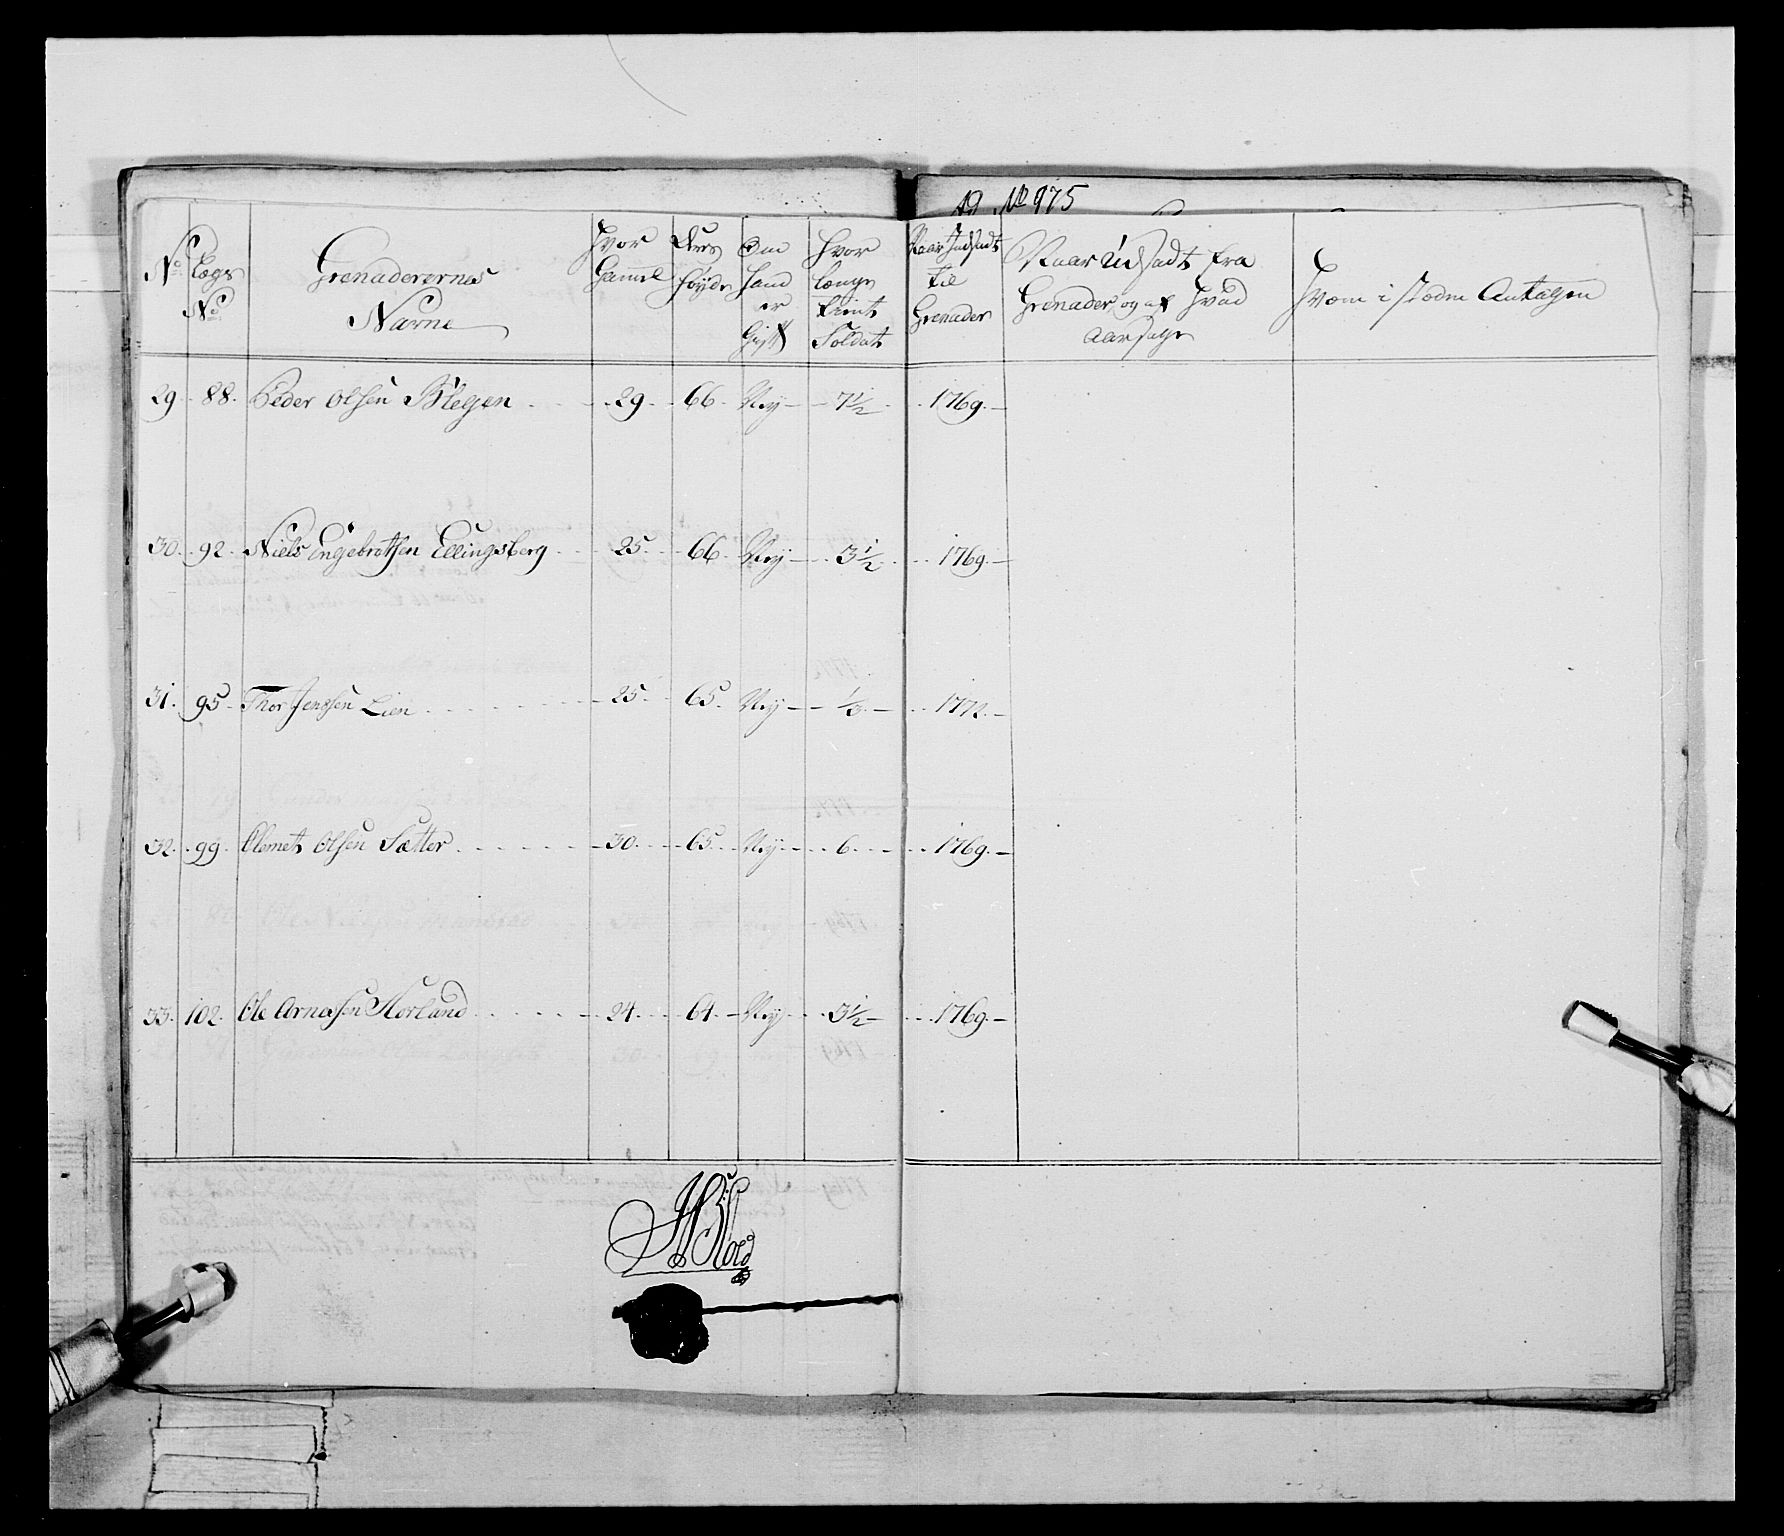 Ad. No 975
No
Lægs No
Grenaderernes Navne
Hvor Gamel
Deres Høyde
Om hand er Gift
Hvor længe tient Soldat
Naar Indsadt til Grenader
Naar Udsadt fra Grenader og af Hvad Aarsager
Hvem i stæden Antagen
29. 88. Peder Olsen 29. 66. Ney 7 1/2 1769.
30. 92. Niels Engebretsen Ellingsberg 25. 66. Ney 3 1/2 1769.
31. 95. Thor Jenssen Lien 25. 65. Ney 1/3. 1772.
32. 99. Clemet Olsen Sætter 30. 65. Ney 6. 1769.
33. 102. Ole Arnessen Norland 24. 64. Ney 3 1/2 1769.